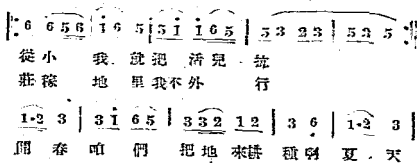 6 6 56 i 6 5 5 i i 6 5 5 3 23 5 2 5
從小 我 就把 活兒 坑
莊稼 地里我不外 行
1·2 3 3 i 6 5 3 3 2 1 2 3 6 1·2 3
開春 咱們 把地來耕 種 夏天